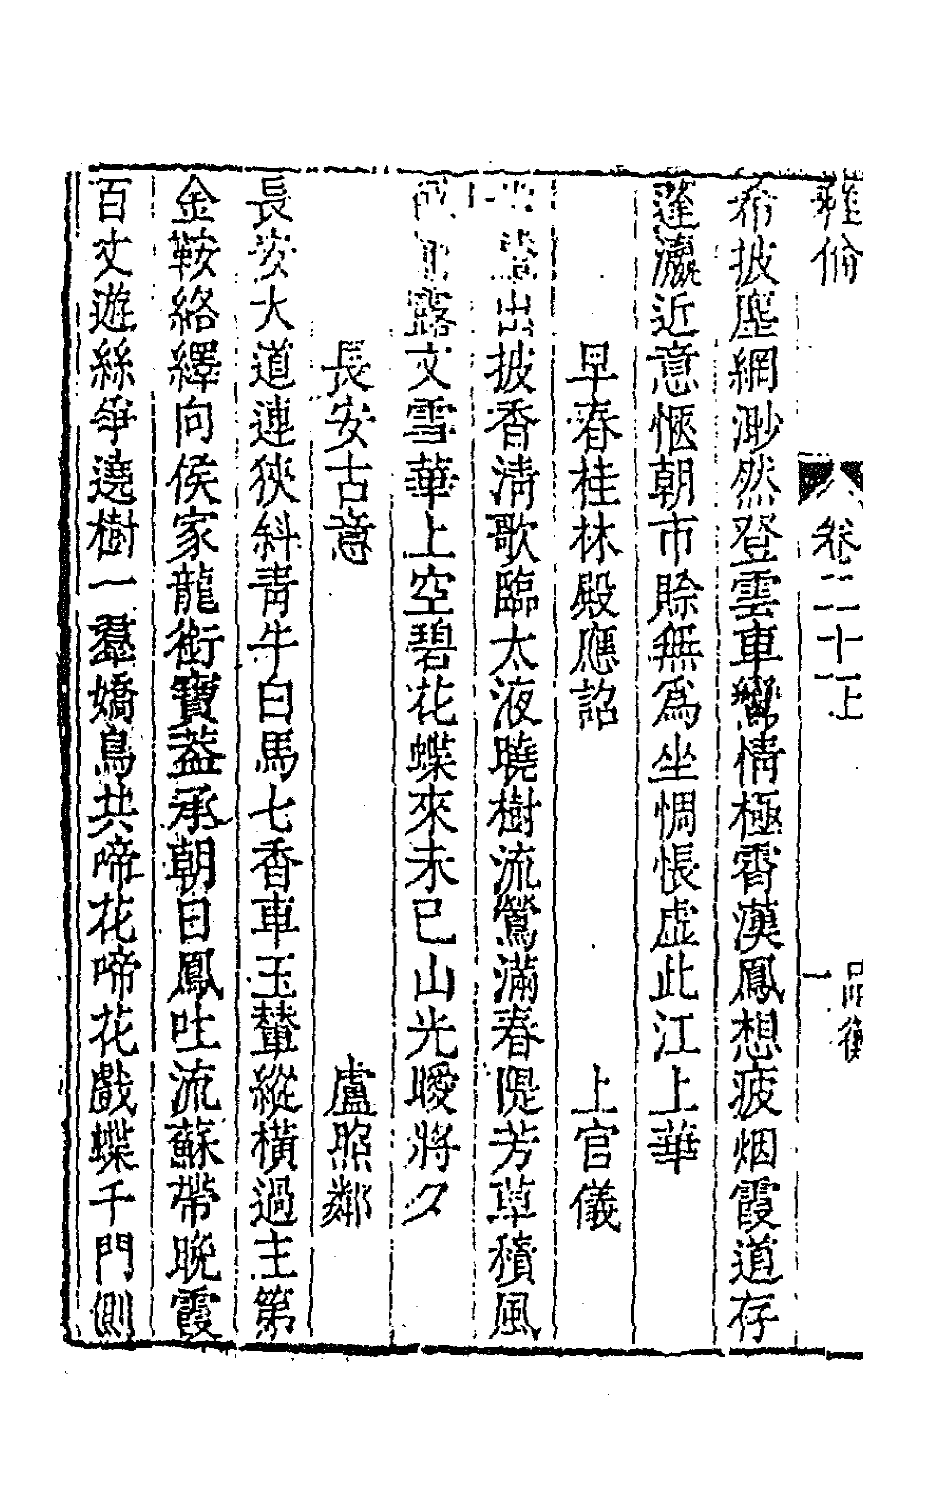 卷二十一上
品彙
一
希披塵網渺然登雲車鸞情極霄漢鳳想疲烟霞道存
蓬瀛近意愜朝市賒無爲坐惆悵虛此江上華
早春桂林殿應詔
上官儀
出披香清歌臨太液曉樹流鶯滿春隄芳草積風
露文雪華上空碧花蝶來未已山光曖將夕
長安古意
盧照鄰
長安大道連狹斜青牛白馬七香車玉輦縱橫過主第
金鞍絡繹向侯家龍銜寶葢承朝日鳳吐流蘇帶晚霞
百丈遊絲爭遶樹一羣嬌鳥共啼花啼花戲蝶千門側